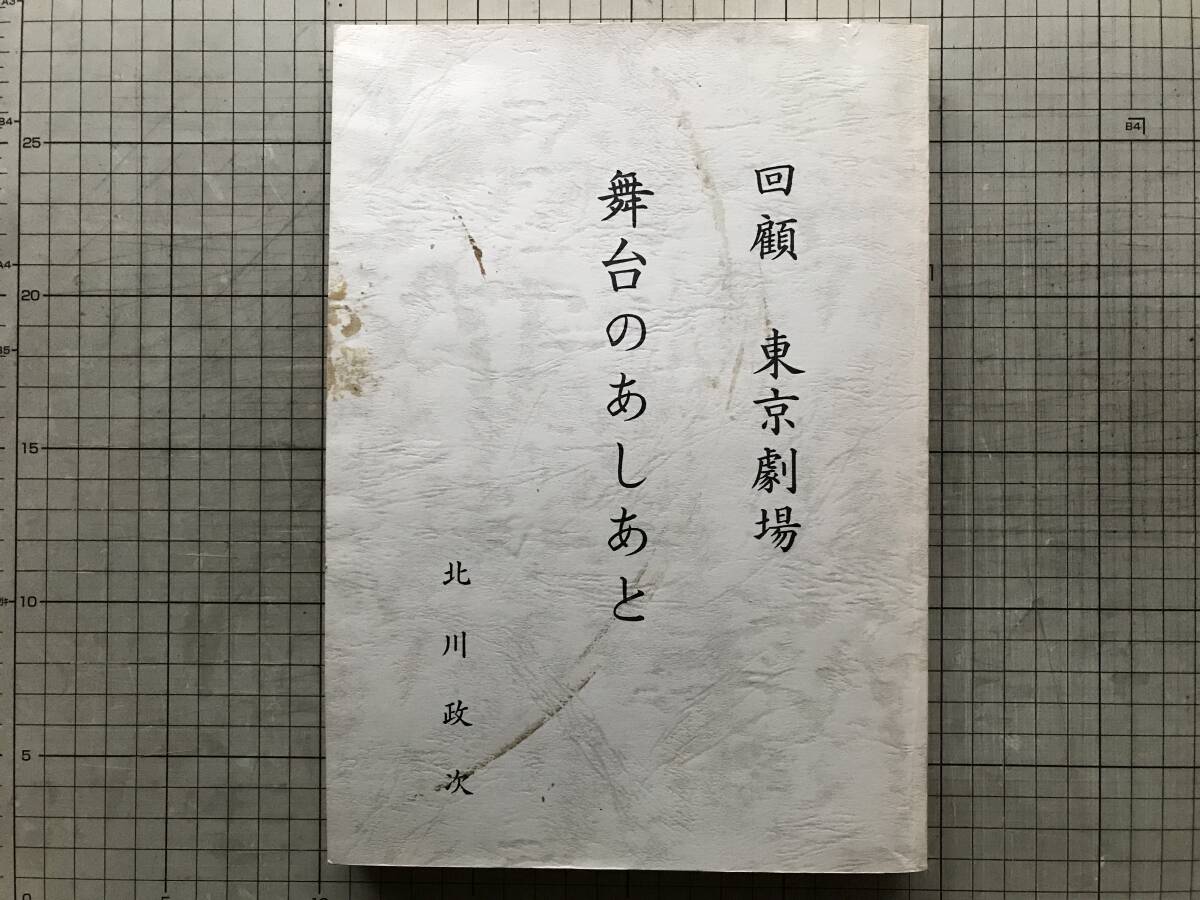 回顧 東京劇場
舞台のあしあと
北川政次
A3
B4
25
A4
20
B5
15
10
5
0
5
10
B4